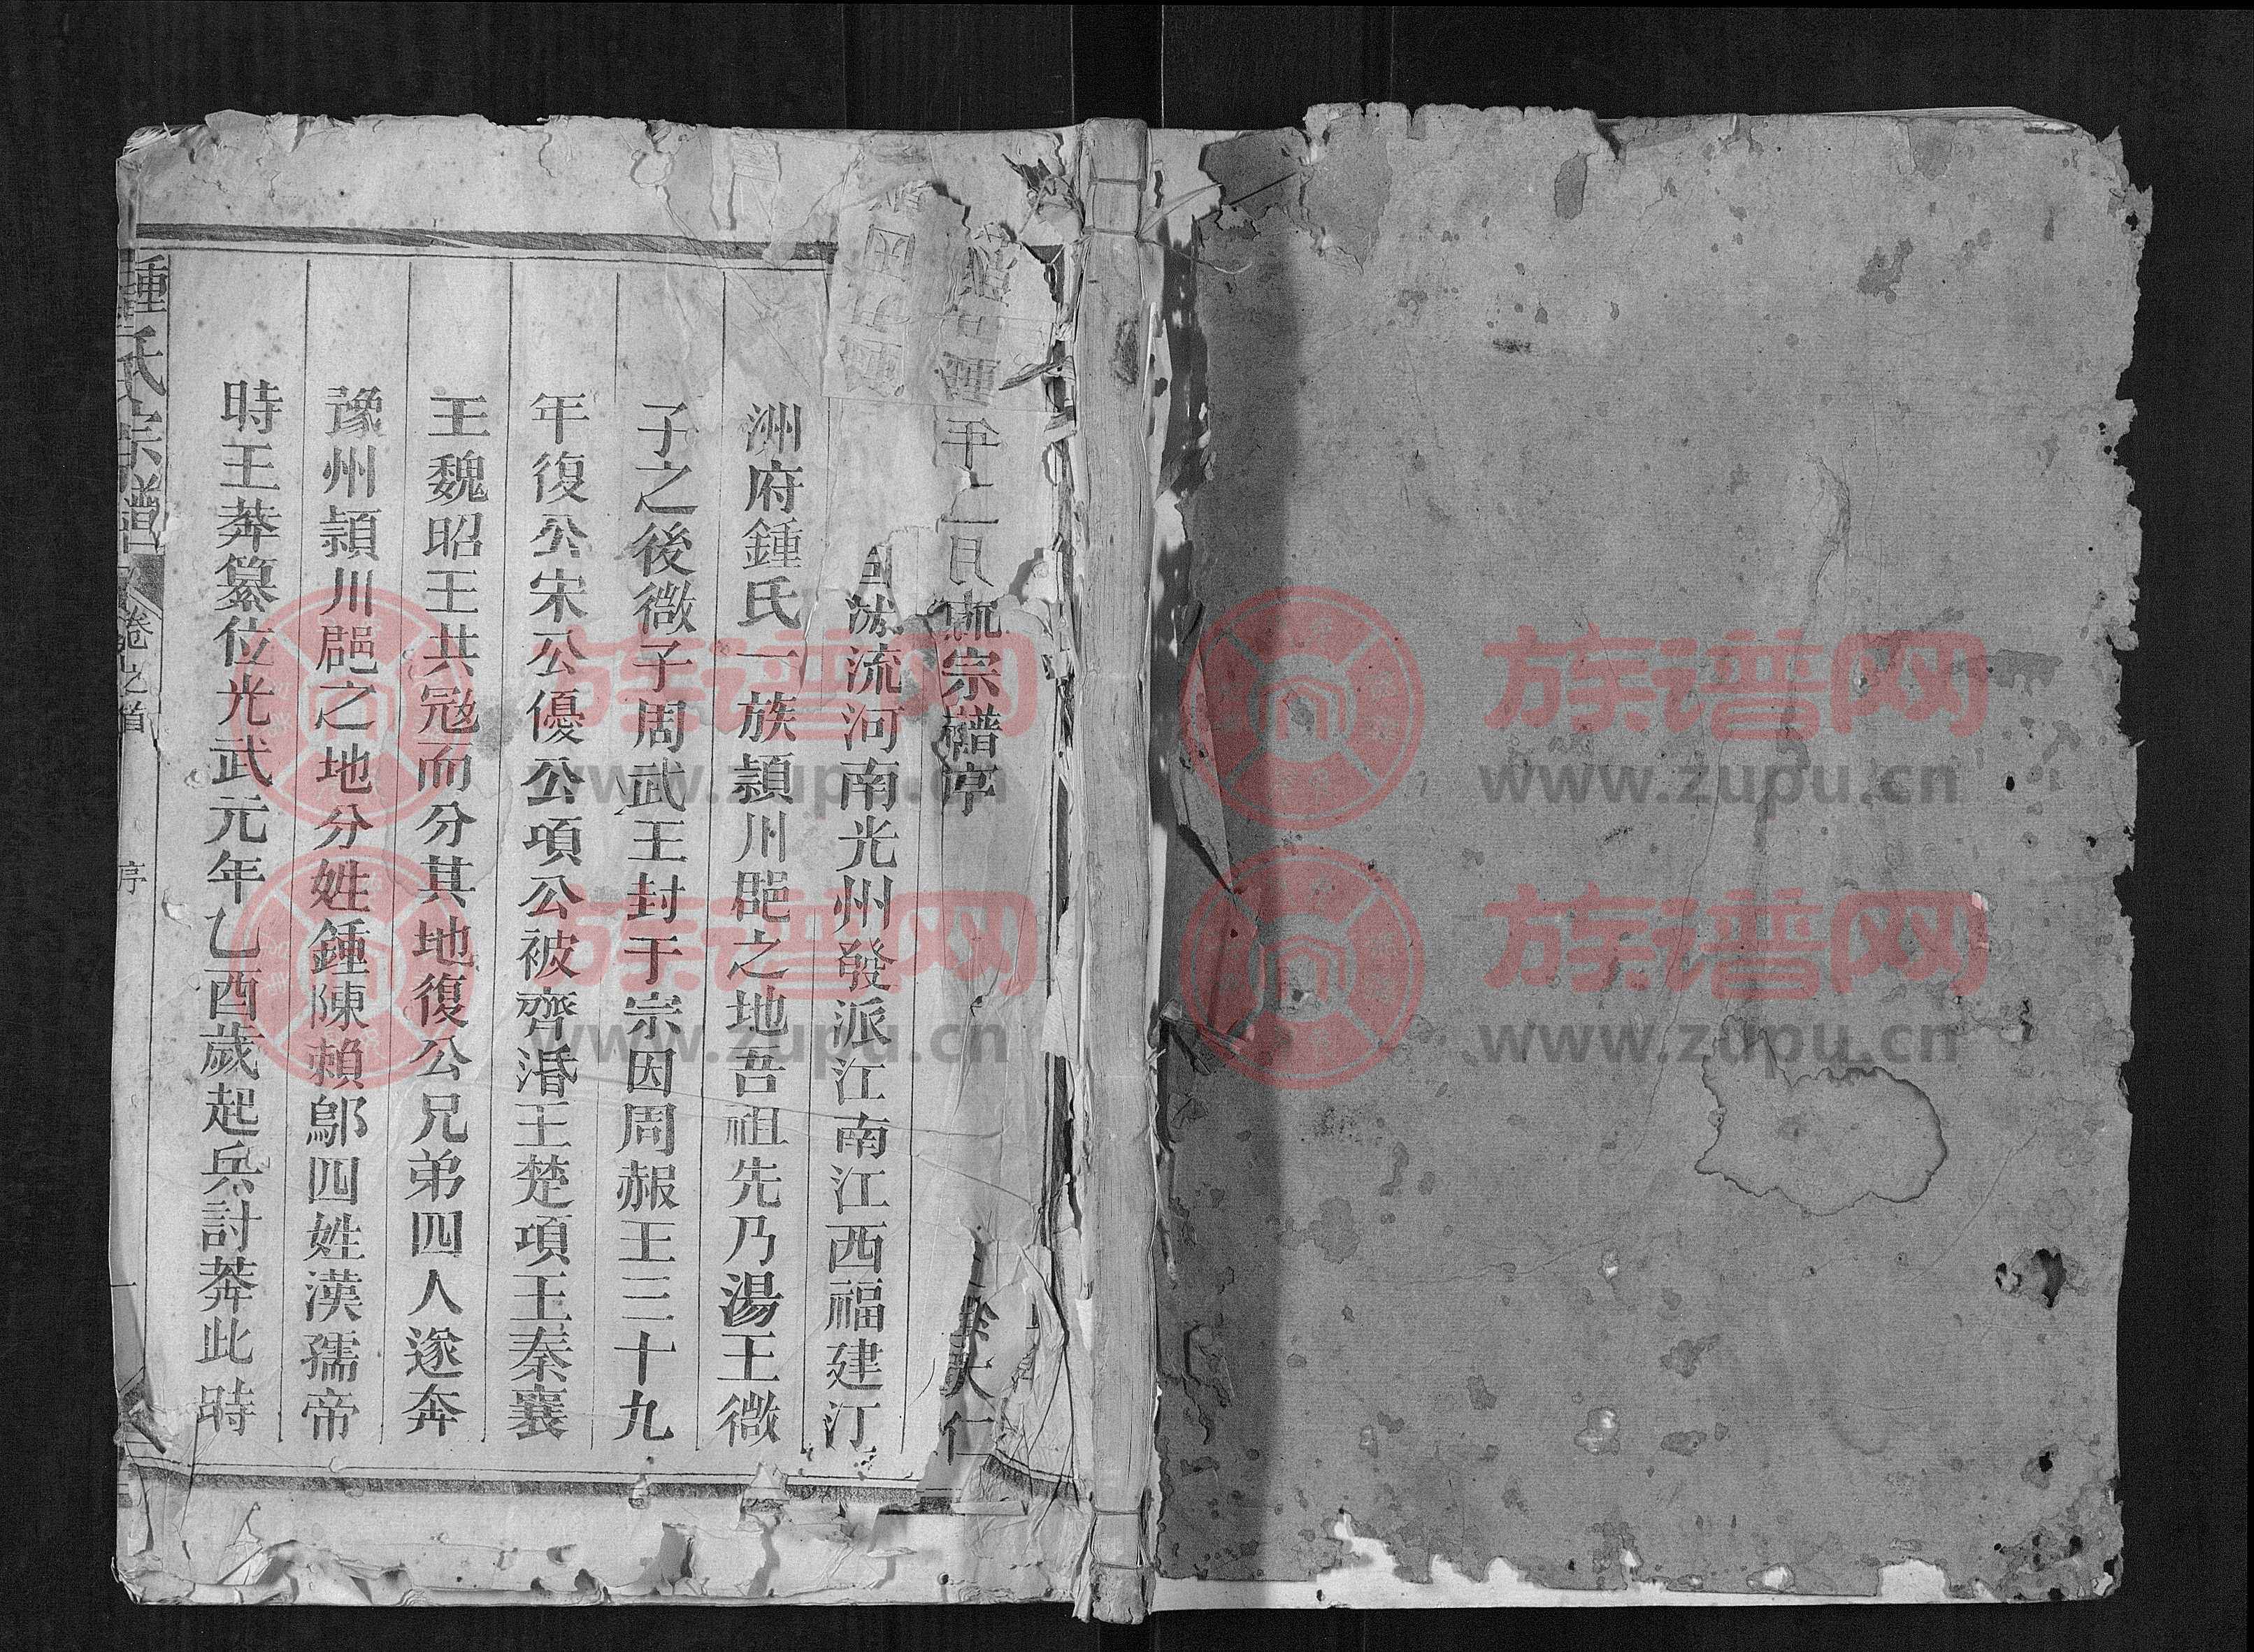 宗譜序
大仁
流河南光州發派江南江西福建汀
洲府鍾氏一族頴川郡之地吾祖先乃湯王微
子之後微子周武王封于宗因周赧王三十九
年復公宋公優公項公被齊湣王楚項王秦襄
王魏昭王共冦而分其地復公兄弟四人遂奔
豫州頴川郡之地分姓鍾陳賴鄔四姓漢孺帝
時王莽簒位光武元年乙酉歲起兵討莽此時
鍾氏宗譜
卷之首
序
一
族谱网
www.zupu.cn
族谱网
www.zupu.cn
族谱网
www.zupu.cn
族谱网
www.zupu.cn